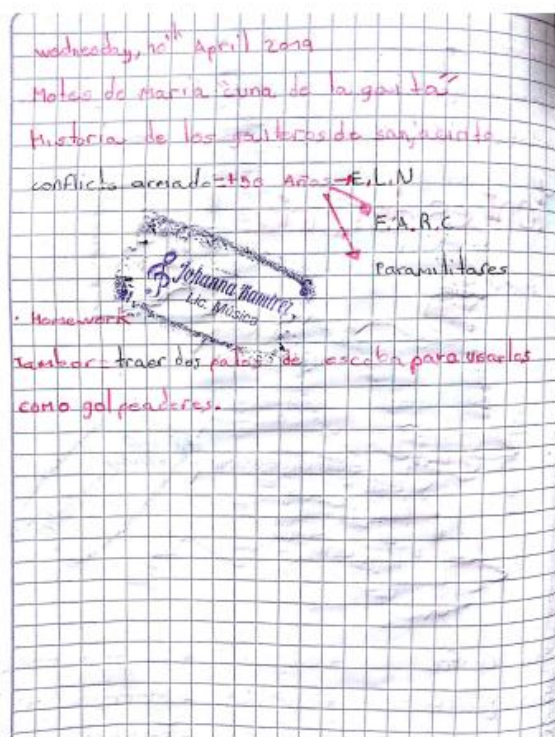 wednesday, 10th April 2019
Motes de maria "cuna de la gaita"
Historia de los gaiteros de san jacinto
conflicto armado = +50 Años → E.L.N
F.A.R.C
Paramilitares
Johanna Ramirez
Lic. Música
• Homework
Tambor = traer dos palos de escoba para usarlos
como golpeadores.